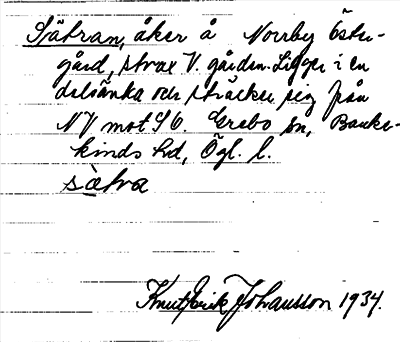 Sätran, åker å Norrby Öster-
gård, strax V. gården. Ligger i en
dalsänka och sträcker sig från
NV mot SO. Grebo sn, Banke-
kinds hd, Ögl. l.
sätra
Knut Erik Johansson 1934.